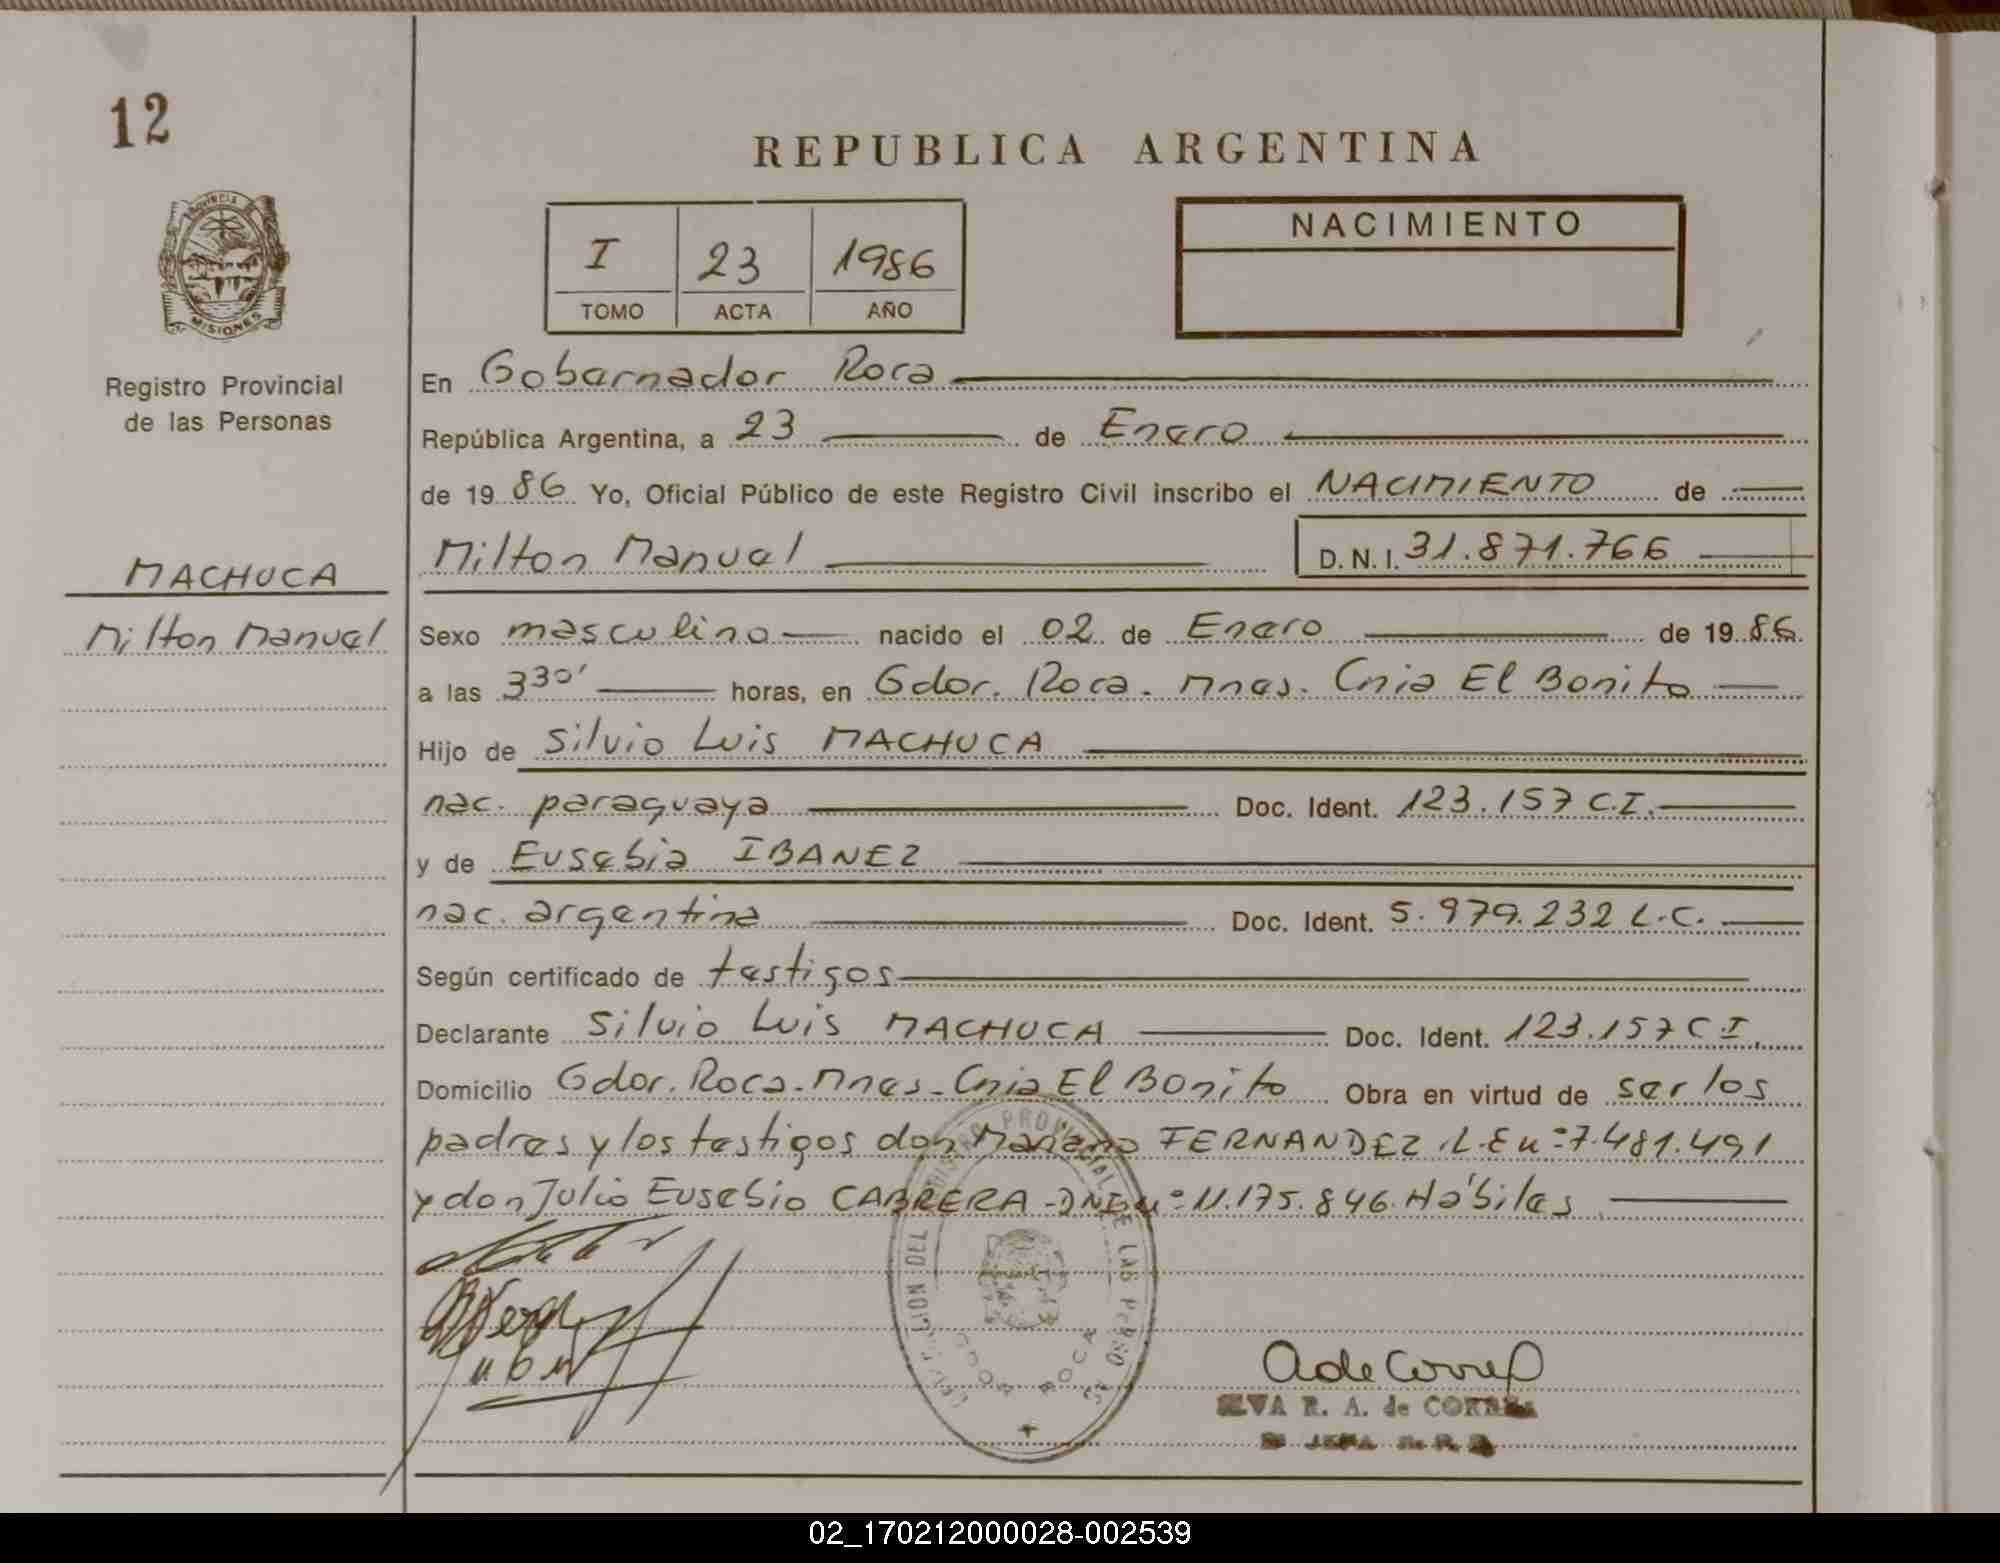 12
PROVINCIA DE
MISIONES
Registro Provincial
de las Personas
MACHUCA
Milton Manuel
REPUBLICA ARGENTINA
I 23 1986
TOMO ACTA AÑO
NACIMIENTO
En Gobernador Roca
República Argentina, a 23 de Enero
de 19 86 Yo, Oficial Público de este Registro Civil inscribo el NACIMIENTO de
Milton Manuel D.N.I. 31.871.766
Sexo masculino nacido el 02 de Enero de 19 86
a las 3 30' horas, en Gdor. Roca. Mnes. Cnia El Bonito
Hijo de Silvio Luis MACHUCA
nac. paraguaya Doc. Ident. 123.157 C.I.
y de Eusebia IBANEZ
nac. argentina Doc. Ident. 5.979.232 L.C.
Según certificado de testigos
Declarante Silvio Luis MACHUCA Doc. Ident. 123.157 C.I.
Domicilio Gdor. Roca. Mnes. Cnia El Bonito Obra en virtud de ser los
padres y los testigos don Mariano FERNANDEZ L.E nº 7.481.491
y don Julio Eusebio CABRERA - DNI nº 11.175.846. Hábiles
DEL REGISTRO PROVINCIAL DE LAS PERSONAS
ROCA
A de Correa
R. A. de CORREA
JEFA
02_170212000028-002539